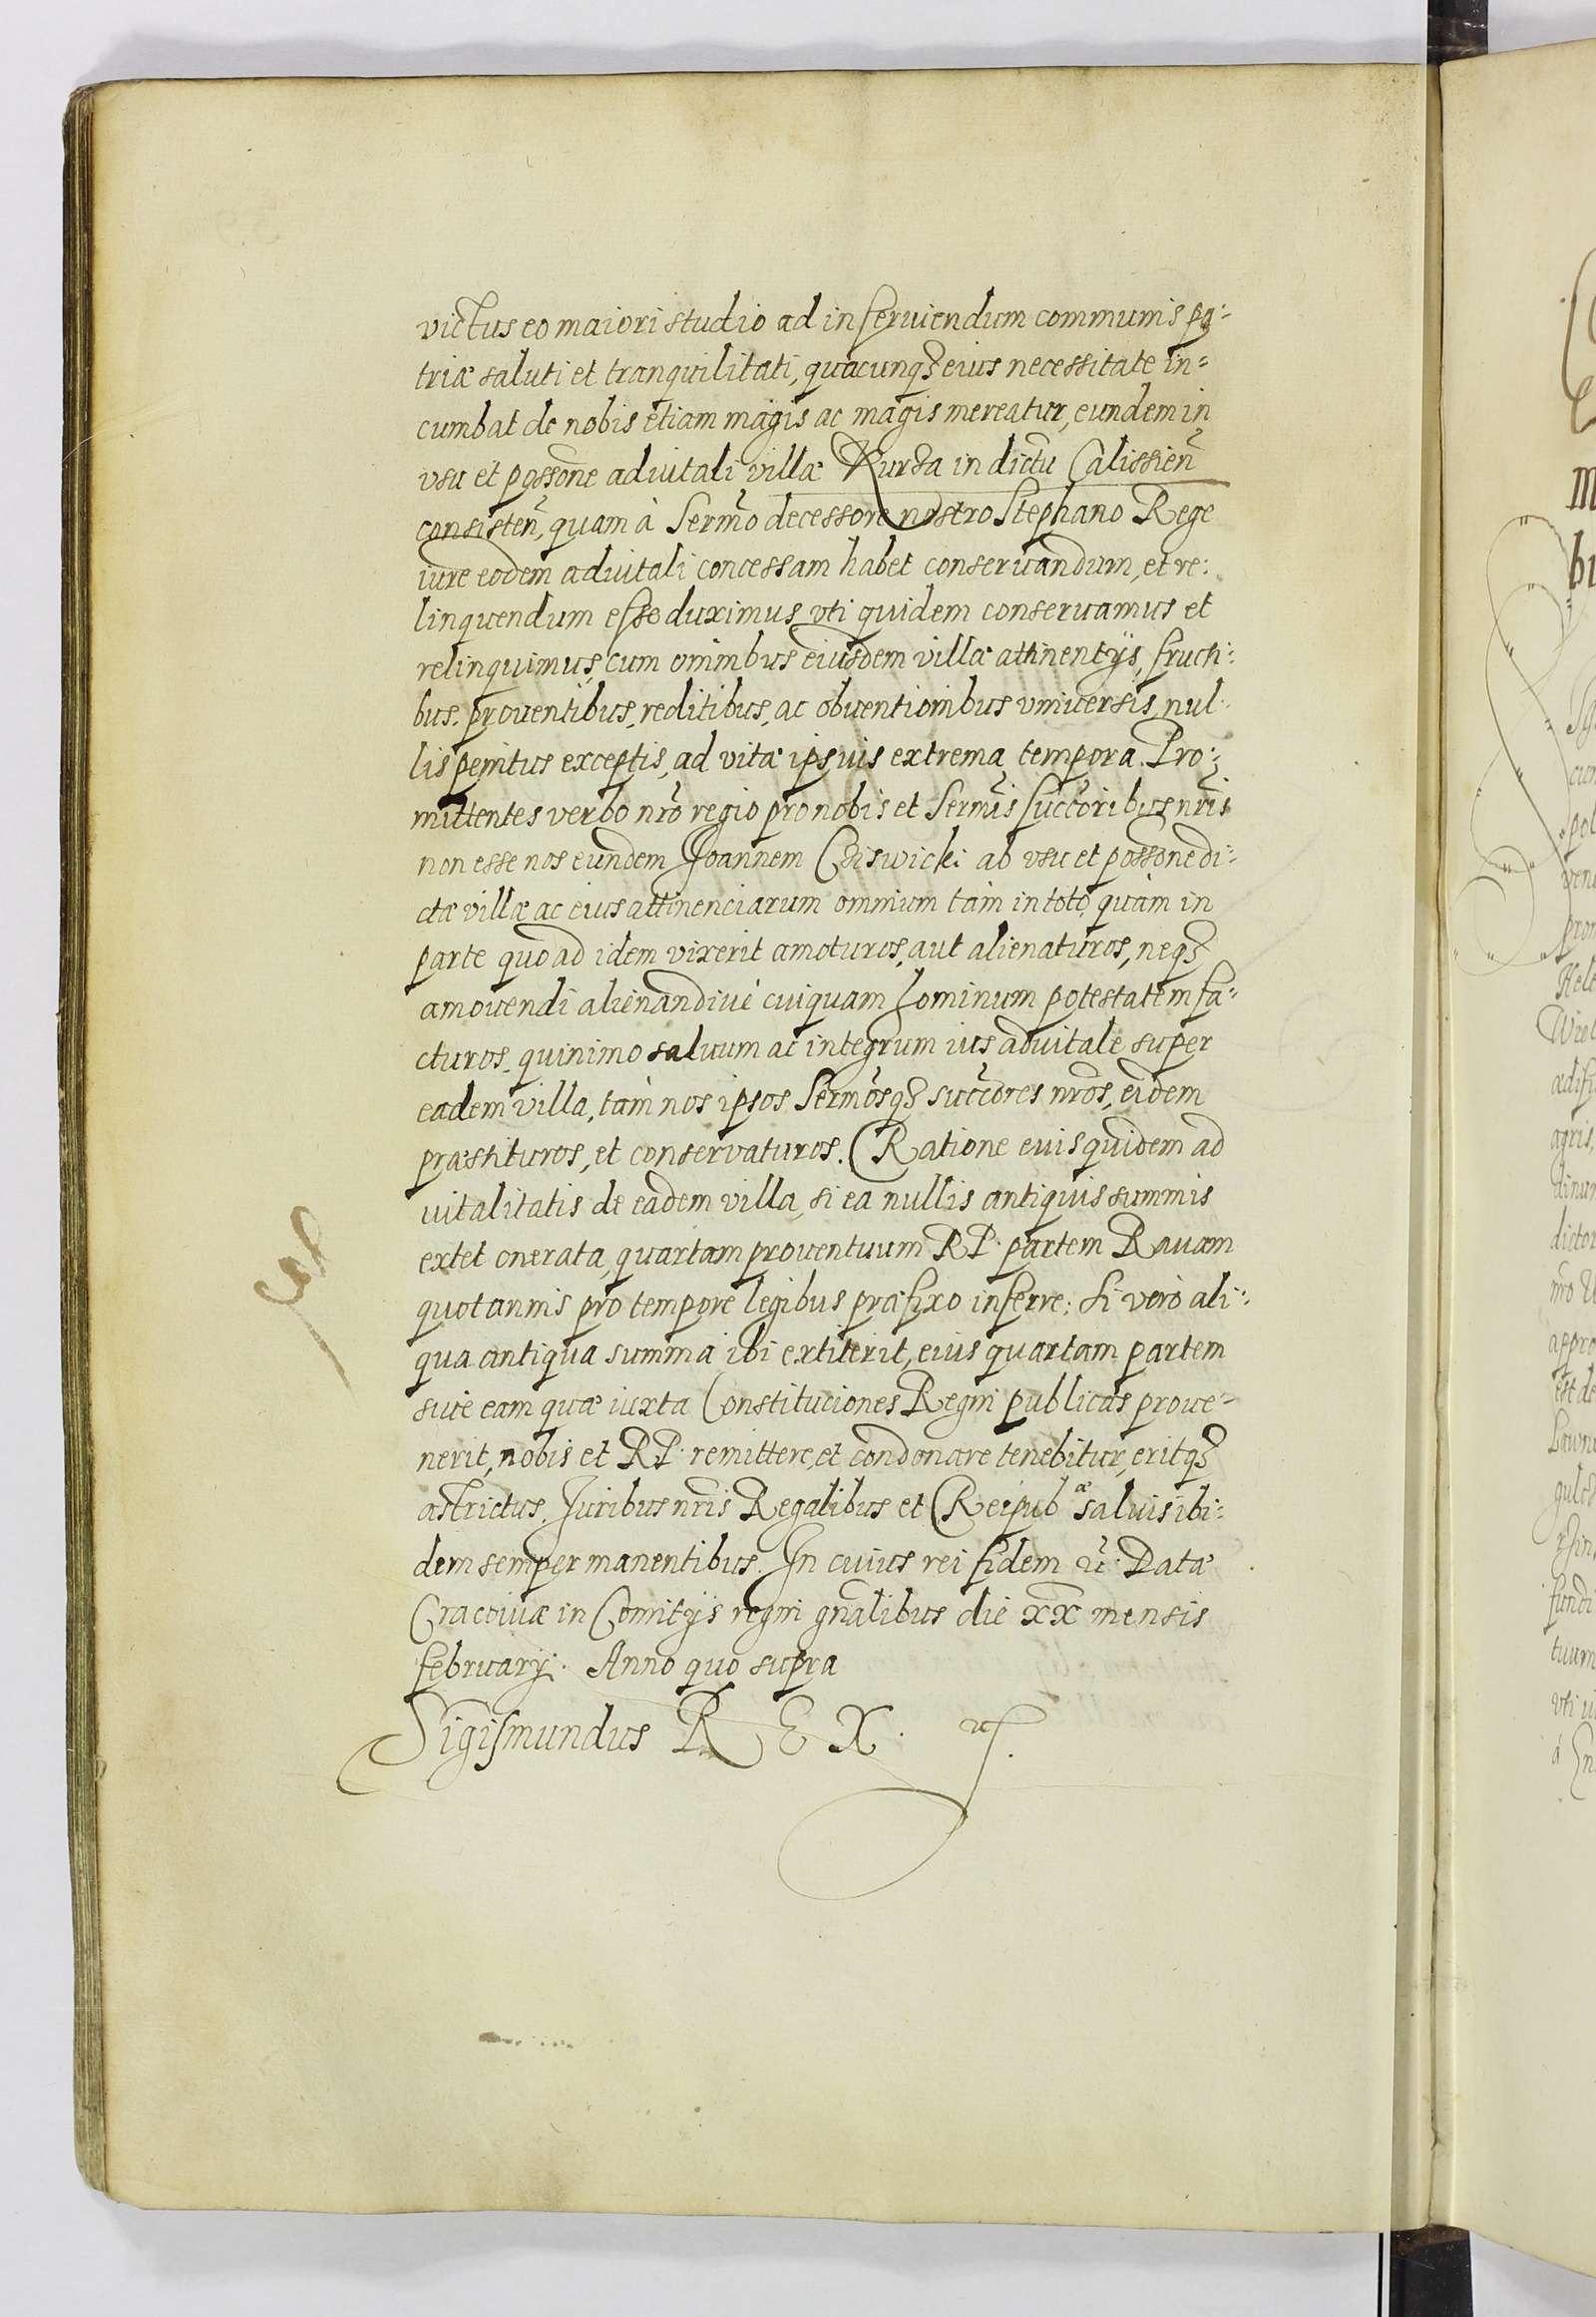 victus eo maiori studio ad inseruiendum communis pa:
triæ saluti et tranquilitati, quacunqꝫ eius necessitate in:
cumbat de nobis etiam magis ac magis mereatur, eundem in
vsu et possone aduitali villæ Kurza in dictu Calissien̄
consisten̄, quam à Sermo decessore nostro Stephano Rege
iure eodem aduitali concessam habet conseruandum, et re:
linquendum esse duximus vti quidem conseruamus et
relinquimus, cum omnibus eiusdem villæ attinentÿs, fructi:
bus, prouentibus, reditibus, ac obuentionibus vniuersis nul:
lis penitus exceptis, ad vitæ ipsius extrema tempora. Pro:
mittentes verbo nro regio pro nobis et Sermis succoribus nris
non esse nos eundem Joannem Cziswicki ab vsu et possone di:
ctæ villæ ac eius attinenciarum omnium tàm in toto, quàm in
parte quo ad idem vixerit amoturos, aut alienaturos, neqꝫ
amouendi alienandiué cuiquam hominum potestatem fa:
cturos. quinimo saluum ac integrum ius aduitale super
eadem villa, tàm nos ipsos Sermosqꝫ succores nros, eidem
præstituros, et conservaturos. Ratione euis quidem ad
uitalitatis de eadem villa, si ea nullis antiquis summis
extet onerata, quartam prouentuum RP. partem Rauam
quotannis pro tempore legibus præfixo inferre; Si verò ali:
qua antiqua summa ibi extiterit, eius quartam partem
siue eam quæ iuxta Constituciones Regni publicas proue:
nerit, nobis et RP. remittere, et condonare tenebitur, eritqꝫ
astrictus. Juribus nris Regalibus et Reipub æ saluis ibi:
dem semper manentibus. In cuius rei fidem &c. Datæ
Cracouiæ in Comitÿs regni gnalibus die XX mensis
februarÿ. Anno quo supra
Sigismundus REX.